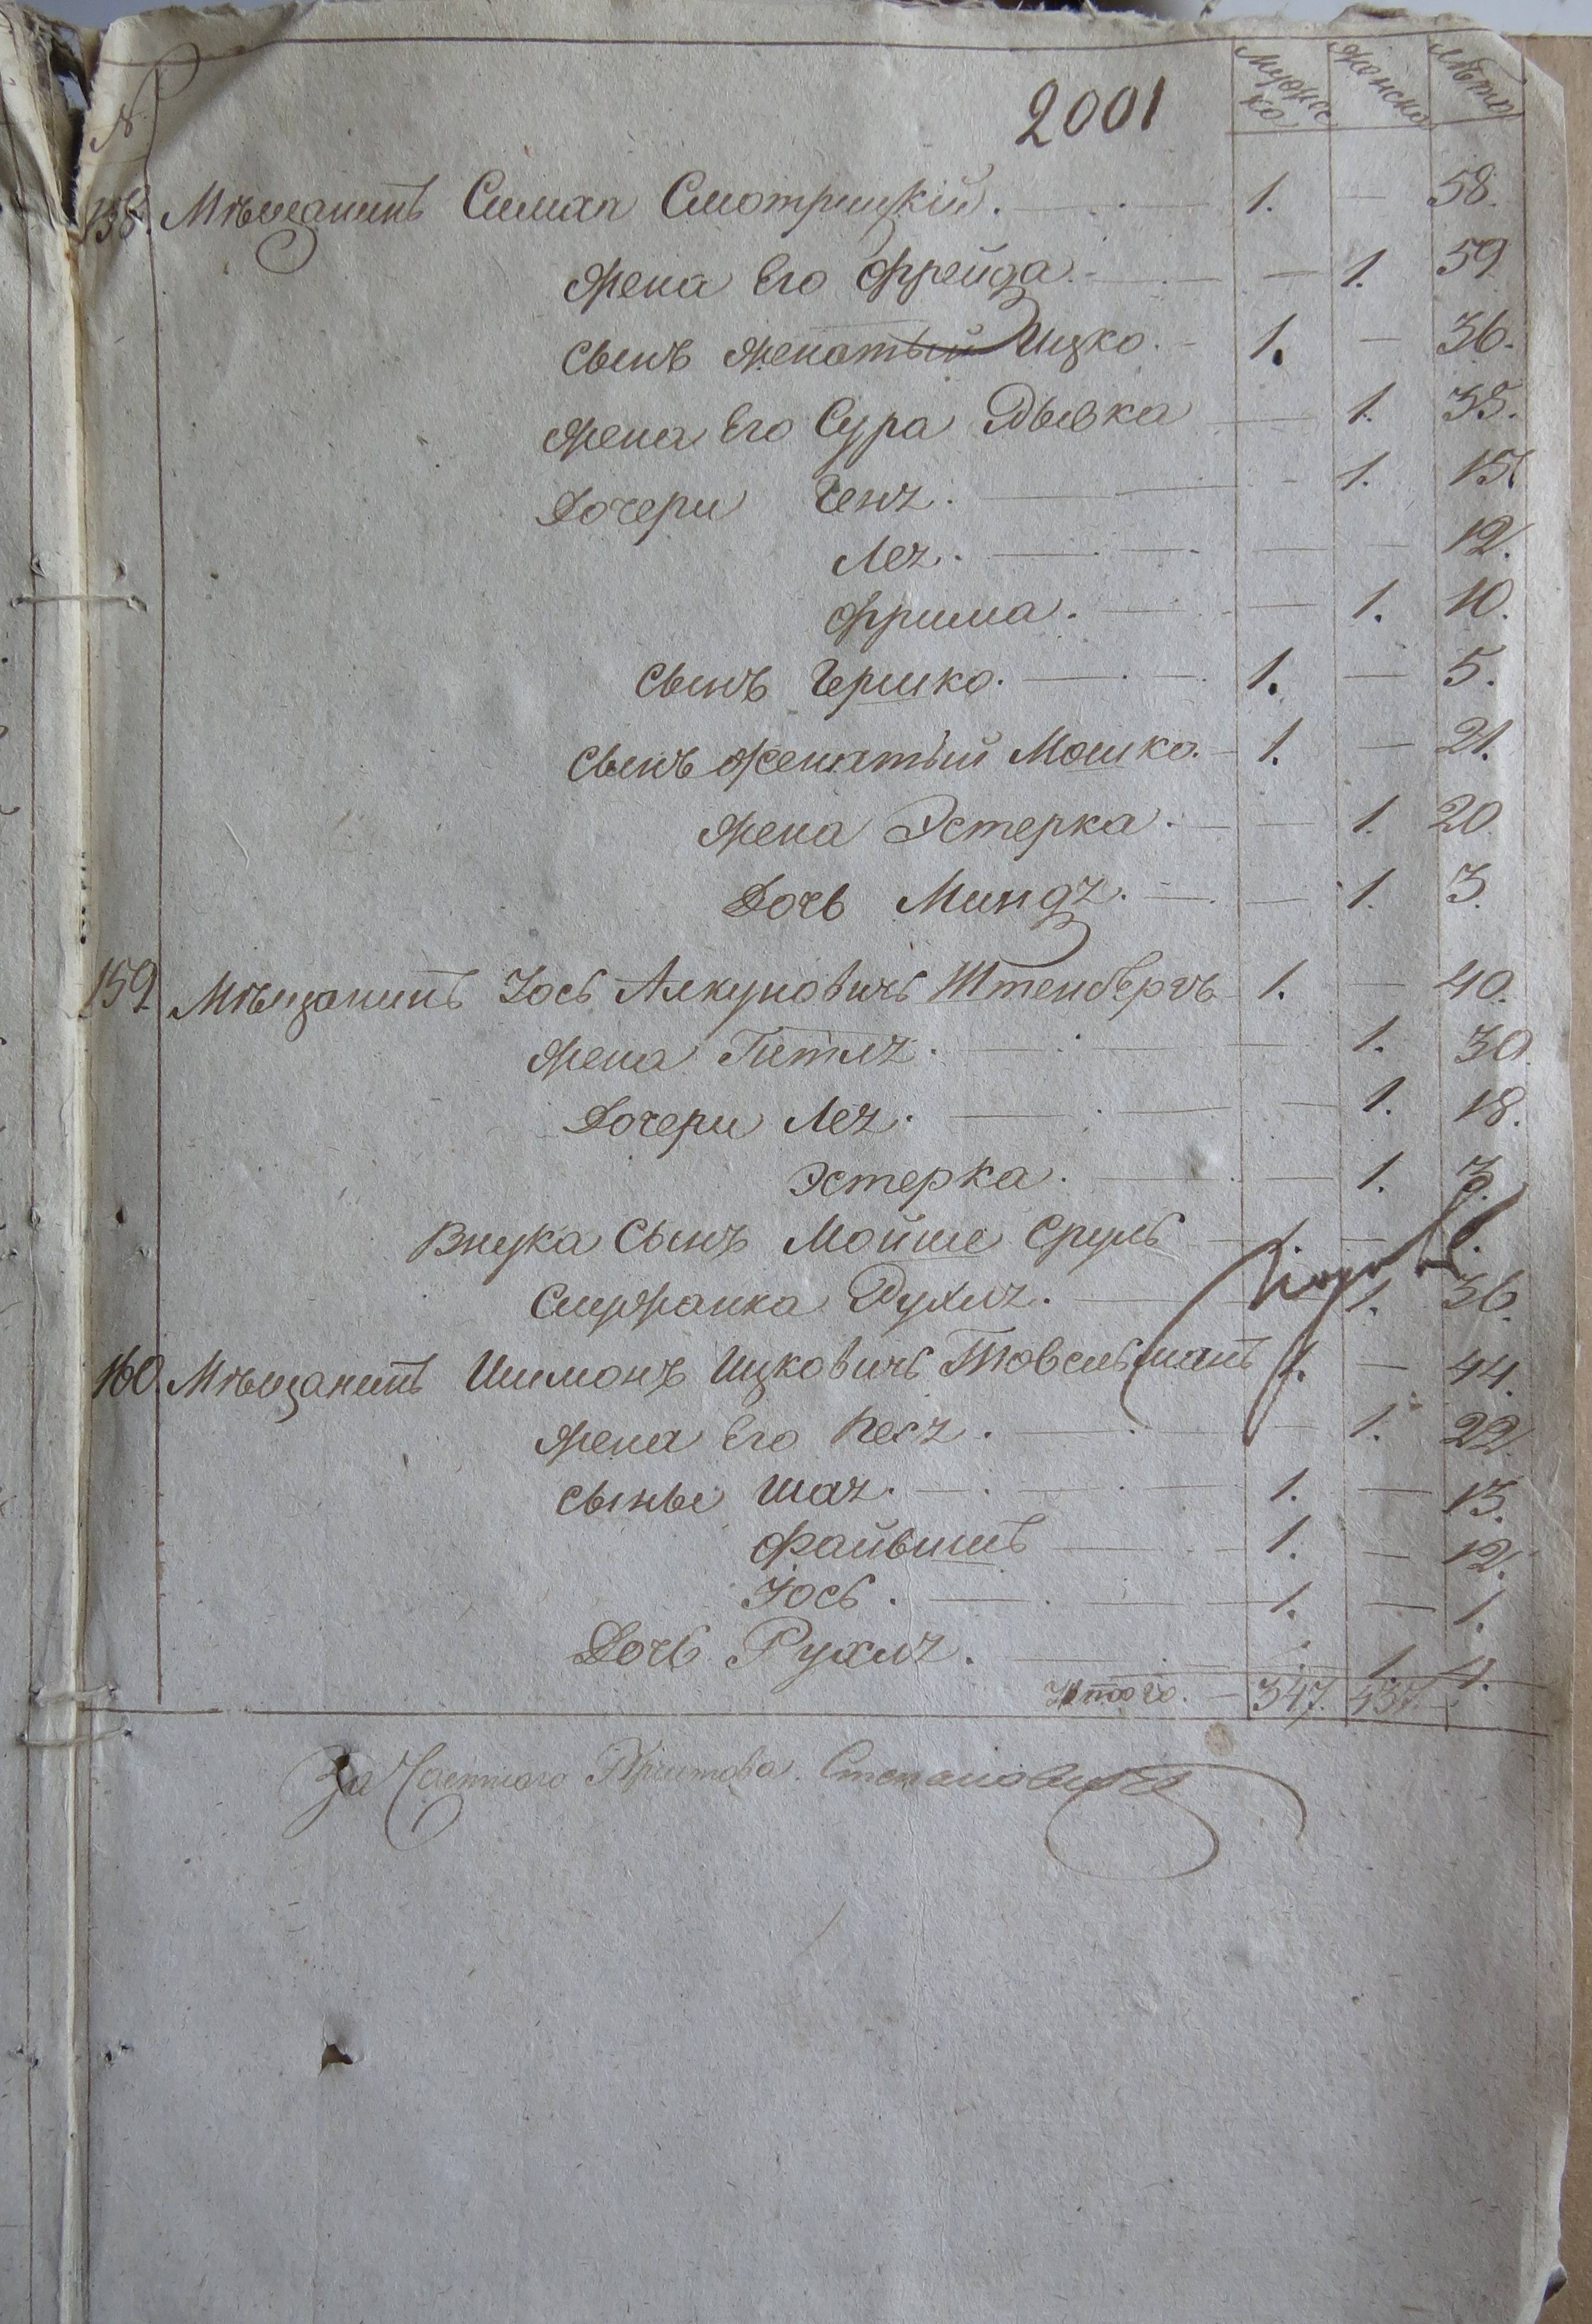 № Мужска Женска Лѣта
2001
158. Мѣщанинъ Симха Смотрицкій. 1. — 58.
Жена Его Фрейда. — 1. 59
Сынъ женатый Ицко. 1. — 36.
Жена Его Сура Рывка — 1. 35.
Дочери Геня. — 1. 15.
Лея. — — 12.
Фрима. — 1. 10.
Сынъ Гершко. 1. — 5.
Сынъ женатый Мошко. 1. — 21.
Жена Эстерка. — 1. 20
Дочь Миндя. — 1. 3.
159 Мѣщанинъ Іось Алкуновичь Штенбергъ 1. — 40.
Жена Гитля. — 1. 30.
Дочери Лея. — 1. 18.
Эстерка. — 1. 3.
Внука Сынъ Мойше Сруль 1. —
Служанка Рухля. 1. 36.
160. Мѣщанинъ Шимонъ Ицковичь Товсельманъ 1. — 44.
Жена Его Песя. — 1. 22.
Сыны Шая. 1. — 13.
Файвишъ 1. — 12.
Іось. 1. — 1.
Дочь Рухля. 1. 4.
Итого. 347. 437.
За Частнаго Пристава. Степановичь